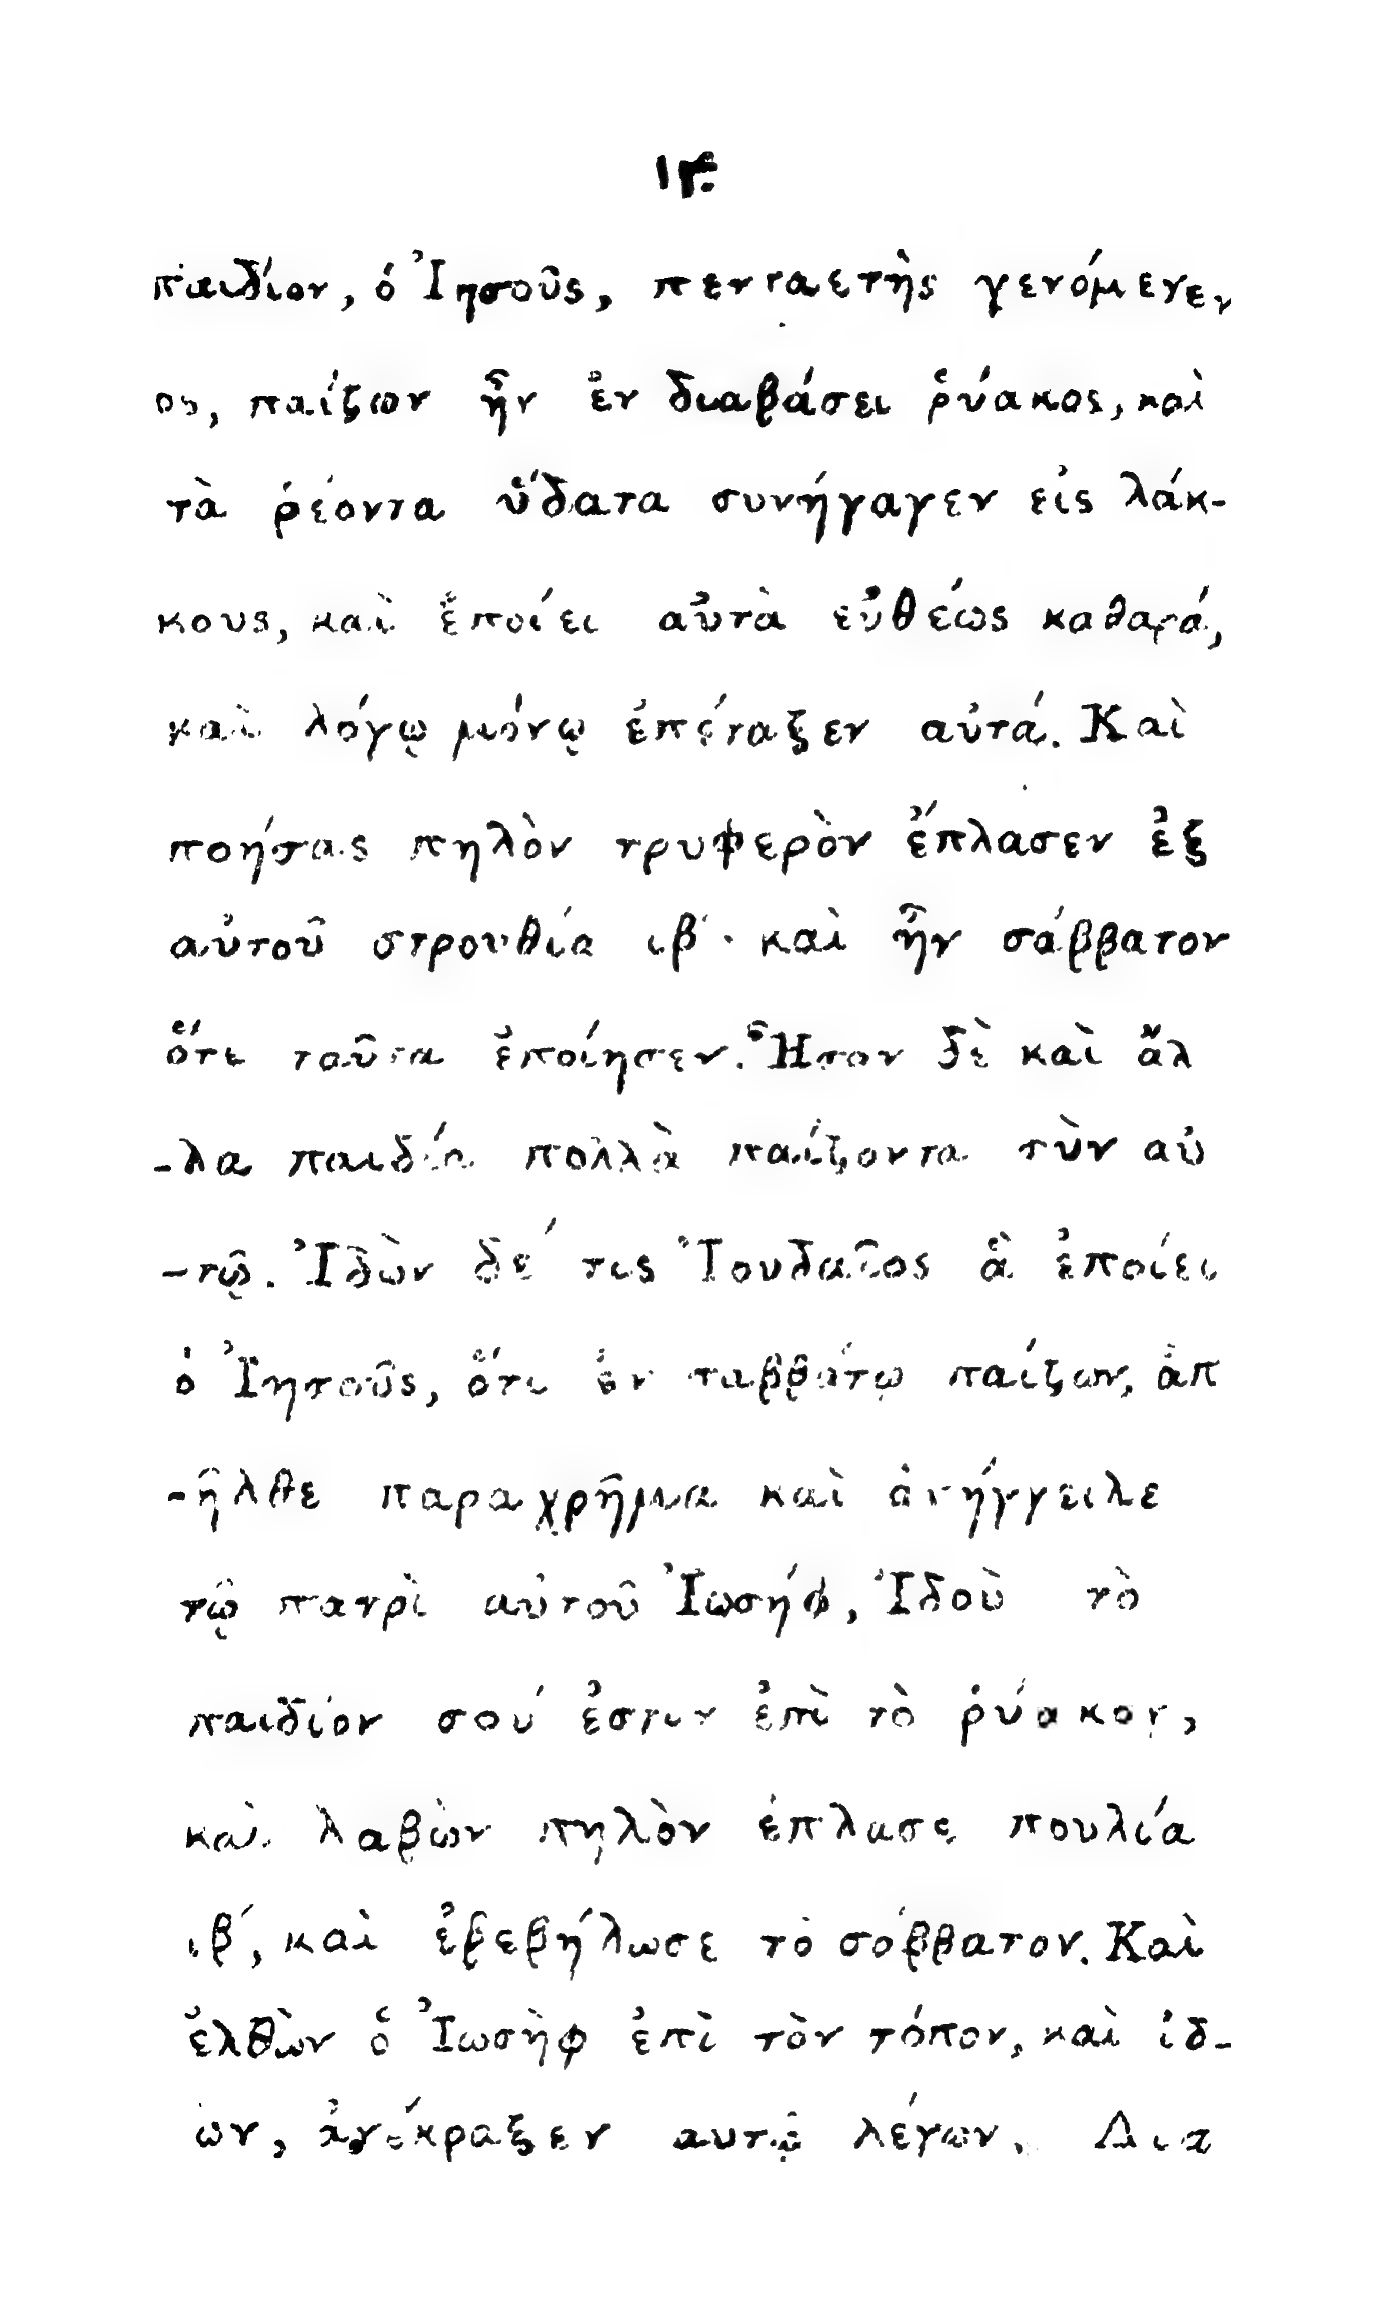 ۱۴
παιδίον, ὁ Ἰησοῦς, πενταετὴς γενόμενεν
ος, παίζων ἦν ἐν διαβάσει ῥύακος, καὶ
τὰ ῥέοντα ὕδατα συνήγαγεν εἰς λάκ-
κους, καὶ ἐποίει αὐτὰ εὐθέως καθαρά,
καὶ λόγῳ μόνῳ ἐπέταξεν αὐτά. Καὶ
ποήσας πηλὸν τρυφερὸν ἔπλασεν ἐξ
αὐτοῦ στρουθία ιβ´· καὶ ἦν σάββατον
ὅτε ταῦτα ἐποίησεν. Ἦσαν δὲ καὶ ἄλ
-λα παιδία πολλὰ παίζοντα σὺν αὐ
-τῷ. Ἰδὼν δέ τις Ἰουδαῖος ἃ ἐποίει
ὁ Ἰησοῦς, ὅτι ἐν σαββάτῳ παίζων, ἀπ
-ῆλθε παραχρῆμα καὶ ἀνήγγειλε
τῷ πατρὶ αὐτοῦ Ἰωσήφ, Ἰδοὺ τὸ
παιδίον σού ἐστιν ἐπὶ τὸ ῥύακον,
καὶ λαβὼν πηλὸν ἔπλασε πουλία
ιβ´, καὶ ἐβεβήλωσε τὸ σάββατον. Καὶ
ἐλθὼν ὁ Ἰωσὴφ ἐπὶ τὸν τόπον, καὶ ἰδ-
ὼν, ἀνέκραξεν αυτῷ λέγων, Δια